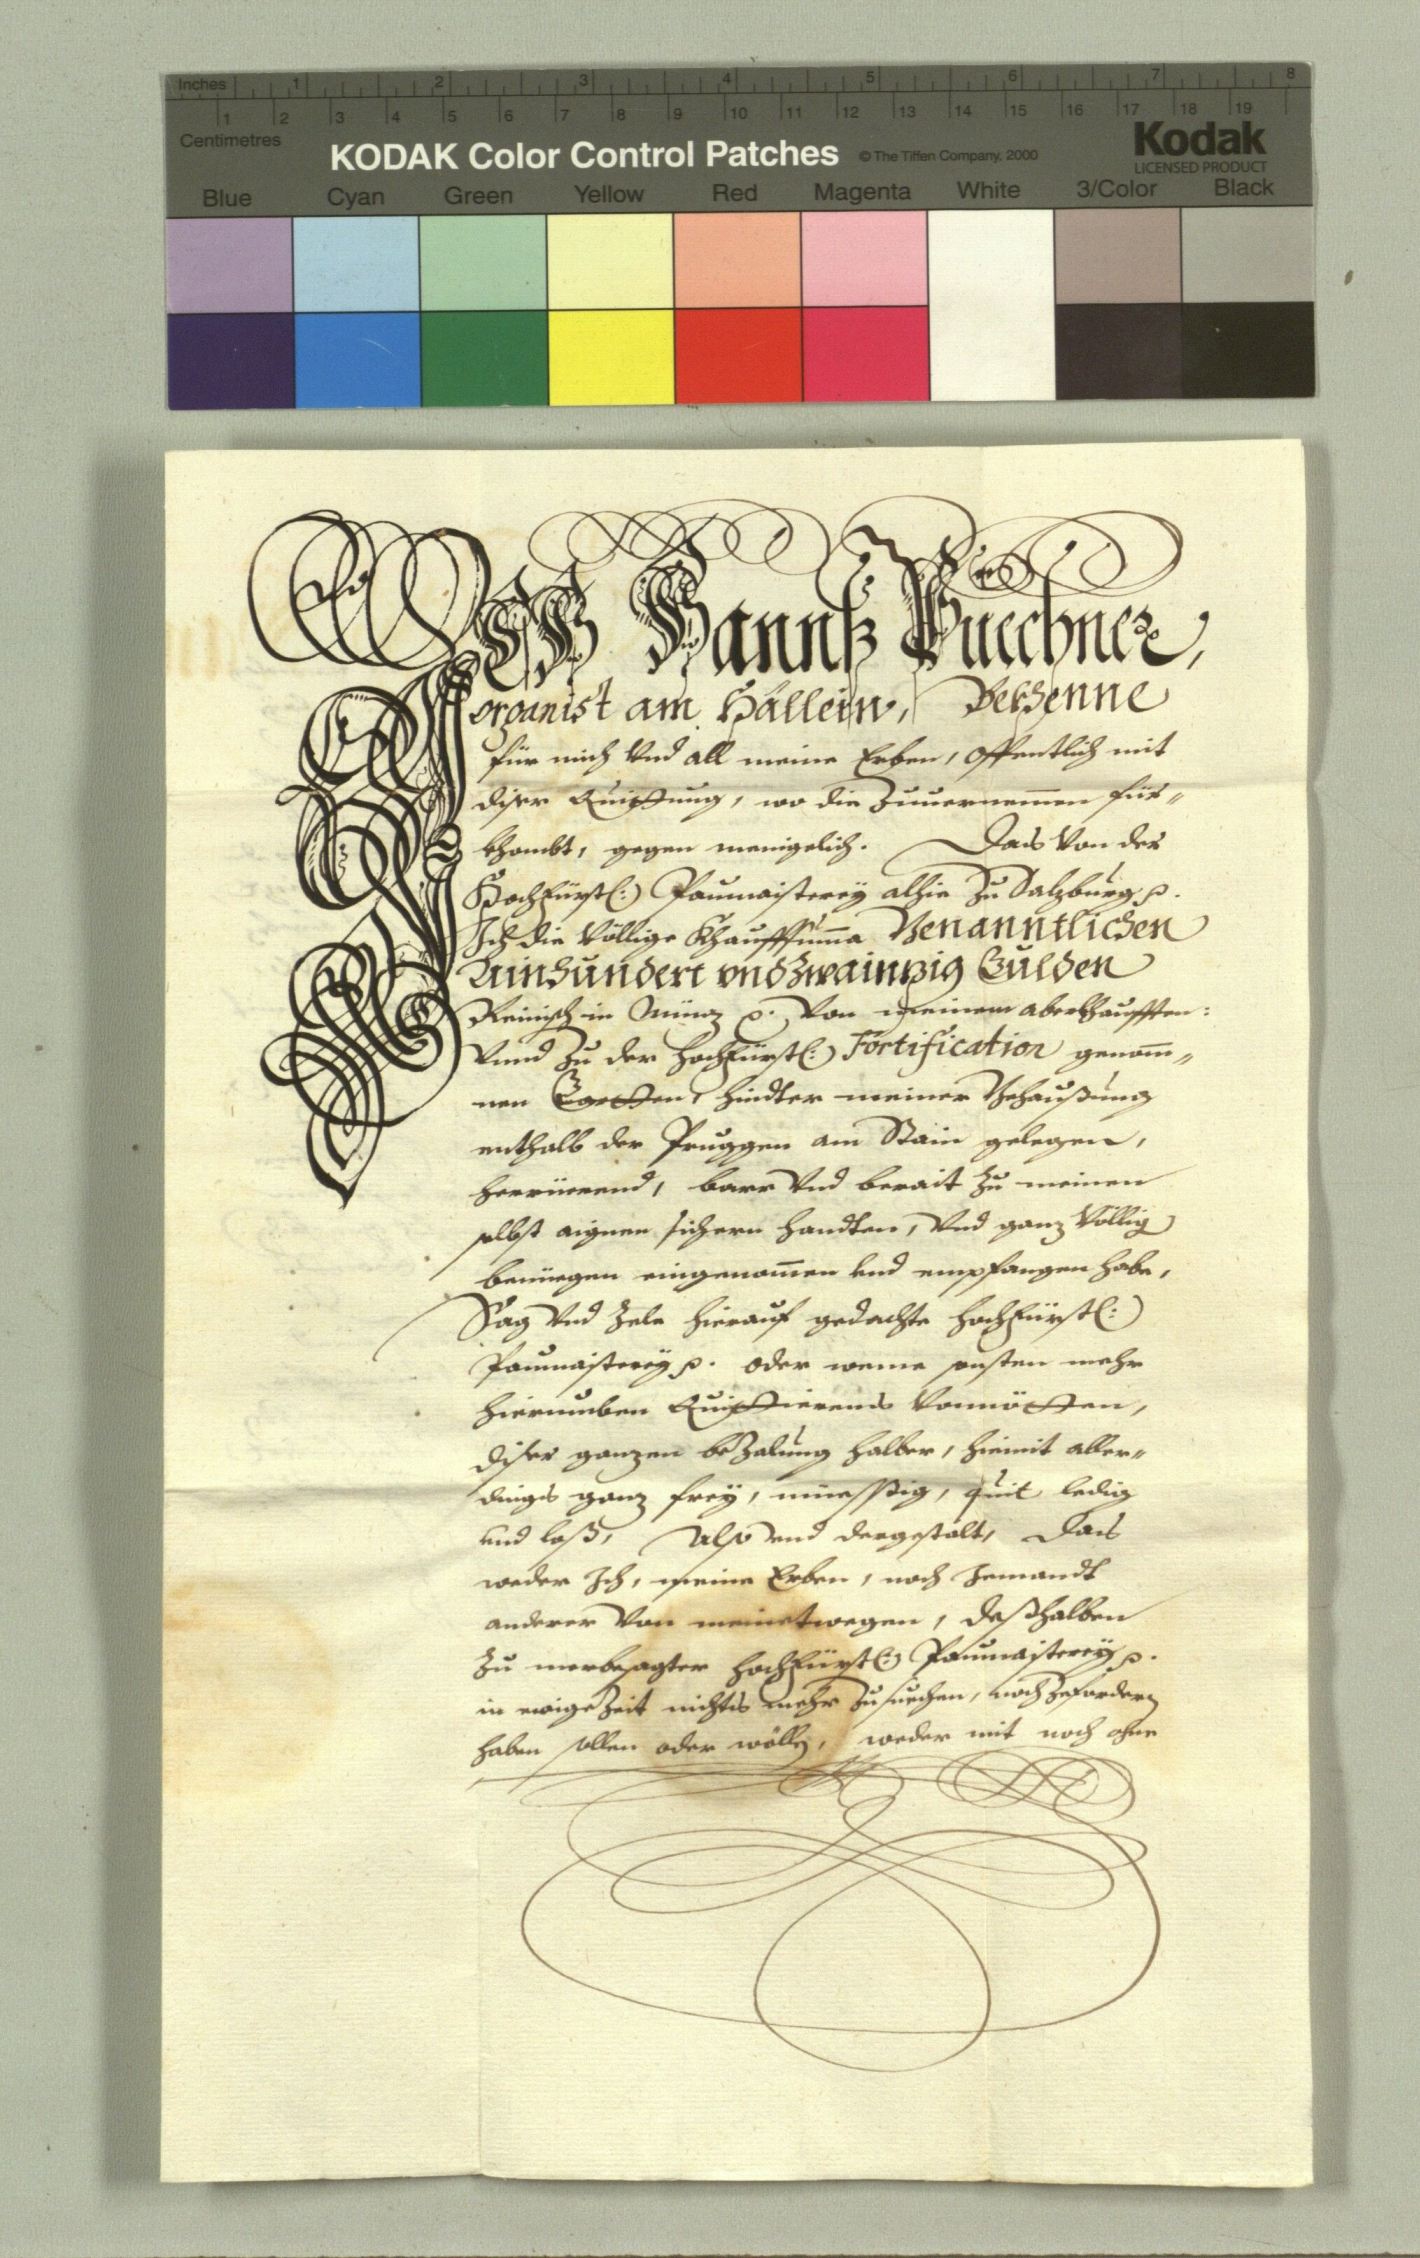 Inches 1 2 3 4 5 6 7 8
1 2 3 4 5 6 7 8 9 10 11 12 13 14 15 16 17 18 19
Centimetres
KODAK Color Control Patches © The Tiffen Company, 2000 Kodak
LICENSED PRODUCT
Blue Cyan Green Yellow Red Magenta White 3/Color Black
Hannß Puechner,
organist am Hällein, Bekhenne
für mich Vnd all meine Erben, offentlich mit
diser Quittung, wo die Zuuernemen für„
khombt, gegen menigelich. Das Von der
Hochfürstl: Paumaisterey alhie Zu Salzburg p.
Ich die Völlige Khauffsuma Benanntlichen
Ainhundert vnd zwainzig Gulden
Reinisch in Münz p. Von meinem aberkhaufften:
Vnnd Zu der Hochfürstl: Fortification genom„
nen Gartten, hindter meiner Behaußung
enthalb der Pruggen am Stain gelegen,
herrüerend, barr Vnd berait Zu meinen
selbst aignen sichern handten, Vnd ganz Völlig
benüegen eingenomen vnd empfangen habe,
Sag Vnd Zele hierauf gedachte Hochfürstl:
Paumaisterey p. oder weme sonsten mehr
hierumben Quittierens Vonnötten,
diser ganzen beZalung halber, hiemit aller„
dings ganz frey, müessig, quit ledig
vnd loß, Also vnd dergestalt, Das
weder Ich, meine Erben, noch Jemandt
anderer Von meinetwegen, deßhalben
Zu merbesagter Hochfürstl: Paumaisterey p.
in ewige Zeit nichts mehr Zu suechen, noch Zefordern
haben sollen oder wöllen, weder mit noch ohne